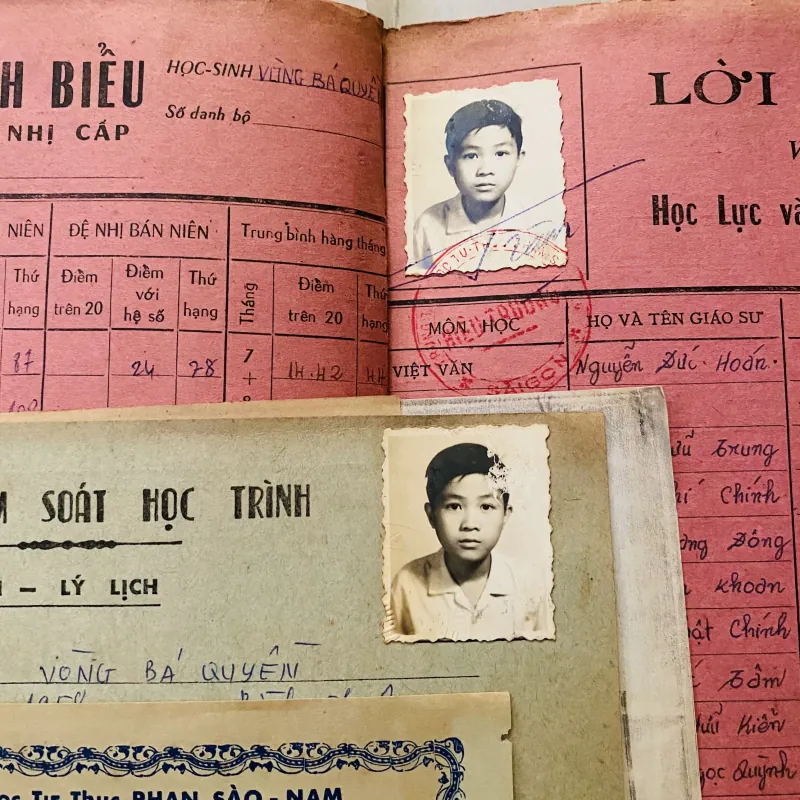 H BIỂU
NHỊ CẤP
HỌC-SINH VÒNG BÁ QUYỀN
Số danh bộ
NIÊN
ĐỆ NHỊ BÁN NIÊN
Trung bình hàng tháng
Thứ hạng
Điểm trên 20
Điểm với hệ số
Thứ hạng
Tháng
Điểm trên 20
Thứ hạng
87
24
28
7
+
14.42
LỜI
V
Học Lực và
MÔN HỌC
HỌ VÀ TÊN GIÁO SƯ
HIỆU TRƯỞNG
SAIGON
VIỆT VĂN
Nguyễn Đức Hoán
Trung
Chính
Đông
Khoan
Chính
Tâm
Kiên
Quỳnh
M SOÁT HỌC TRÌNH
– LÝ LỊCH
VÒNG BÁ QUYỀN
1958
Tư Thục PHAN SÀO-NAM